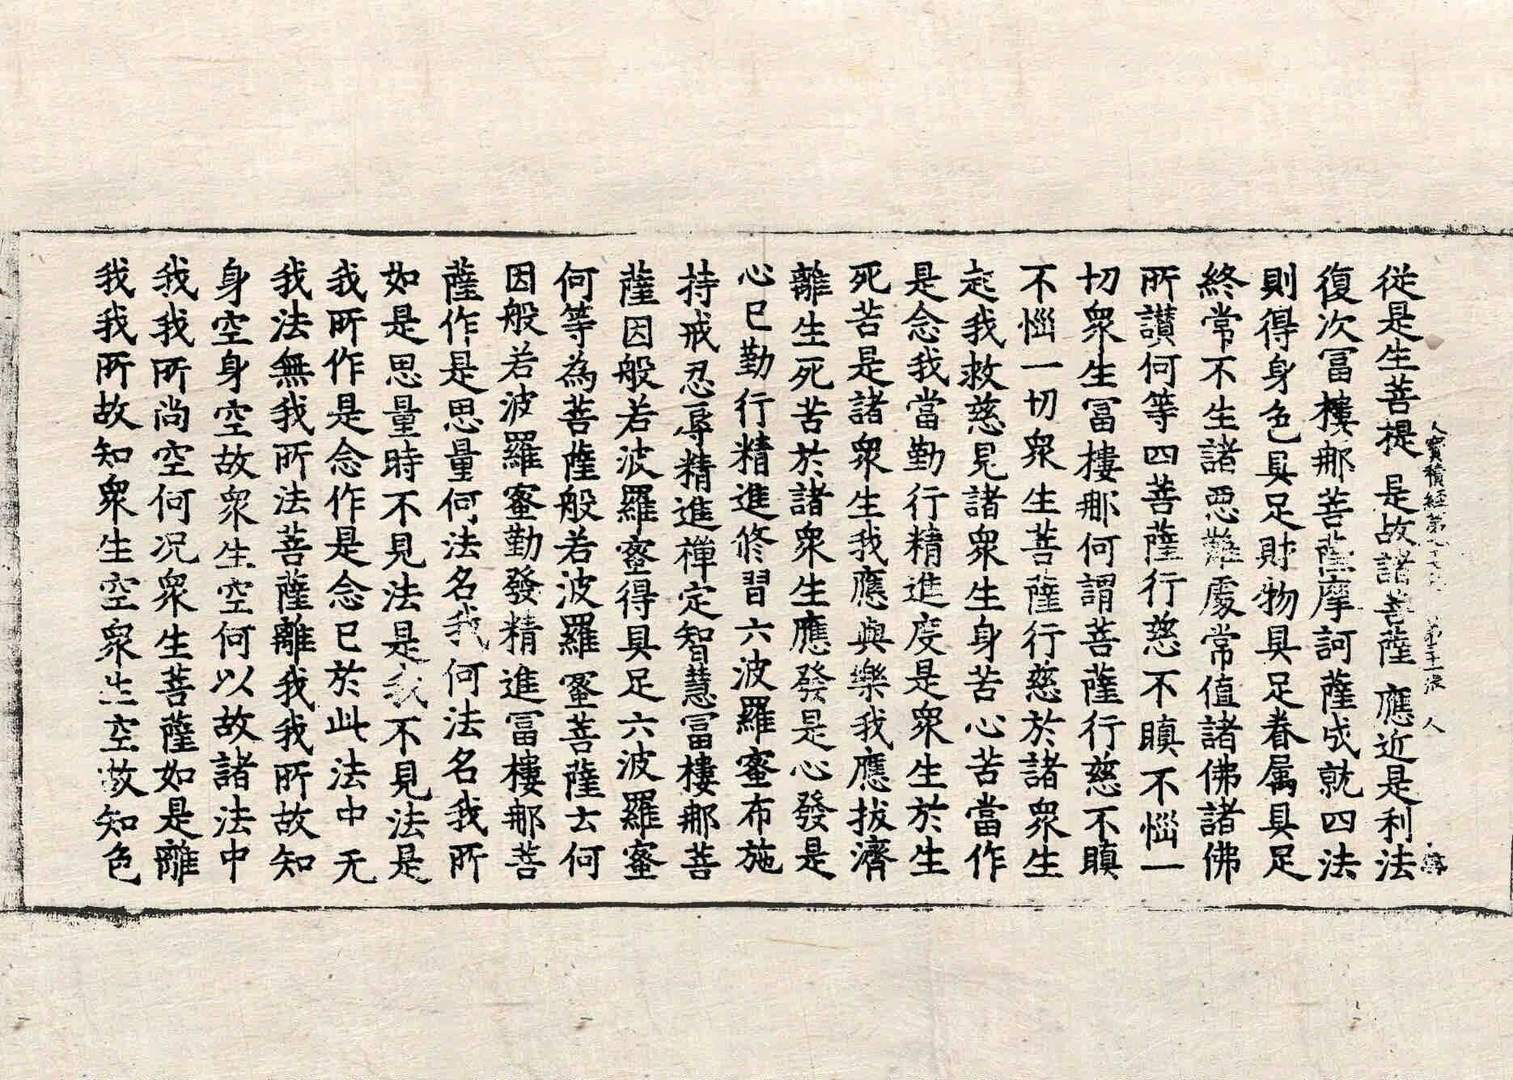 大寶積經第七十七 第二十一張 人
從是生菩提 是故諸菩薩 應近是利法
復次冨樓那菩薩摩訶薩成就四法
則得身色具足財物具足眷属具足
終常不生諸惡難處常值諸佛諸佛
所讃何等四菩薩行慈不瞋不惱一
切衆生冨樓那何謂菩薩行慈不瞋
不惱一切衆生菩薩行慈於諸衆生
起我救慈見諸衆生身苦心苦當作
是念我當勤行精進度是衆生於生
死苦是諸衆生我應與樂我應拔濟
離生死苦於諸衆生應發是心發是
心已勤行精進修習六波羅蜜布施
持戒忍辱精進禪定智慧冨樓那菩
薩因般若波羅蜜得具足六波羅蜜
何等為菩薩般若波羅蜜菩薩云何
因般若波羅蜜勤發精進冨樓那菩
薩作是思量何法名我何法名我所
如是思量時不見法是我不見法是
我所作是念作是念已於此法中无
我法無我所法菩薩離我我所故知
身空身空故衆生空何以故諸法中
我我所尚空何况衆生菩薩如是離
我我所故知衆生空衆生空故知色